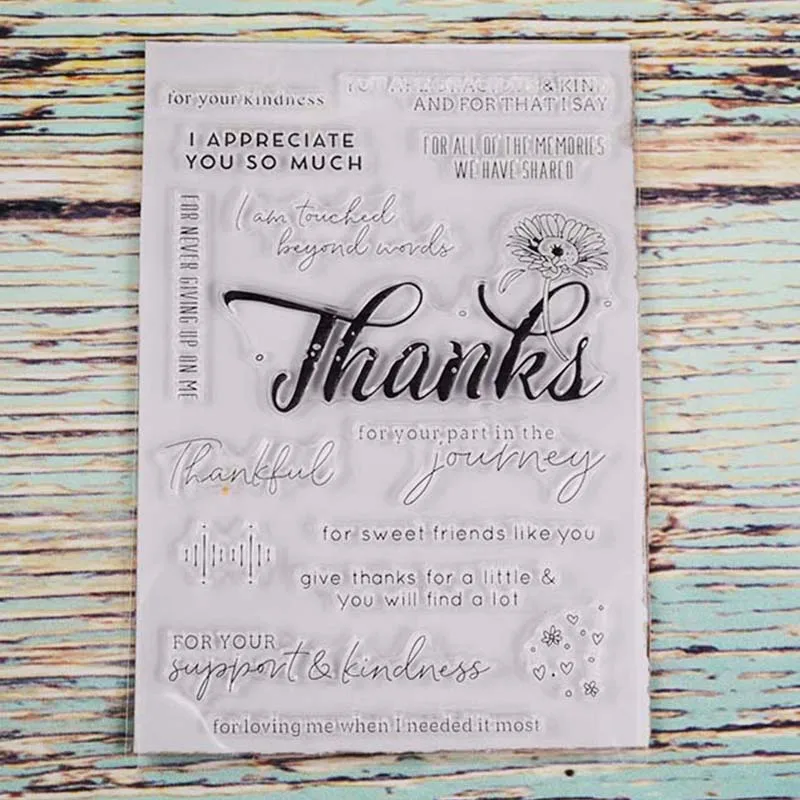 for your kindness
& KIND
AND FOR THAT I SAY
I APPRECIATE
YOU SO MUCH
FOR ALL OF THE MEMORIES
WE HAVE SHARED
I am touched
beyond words
FOR NEVER GIVING UP ON ME
Thanks
for your part in the
journey
Thankful
for sweet friends like you
give thanks for a little &
you will find a lot
FOR YOUR
support & kindness
for loving me when I needed it most